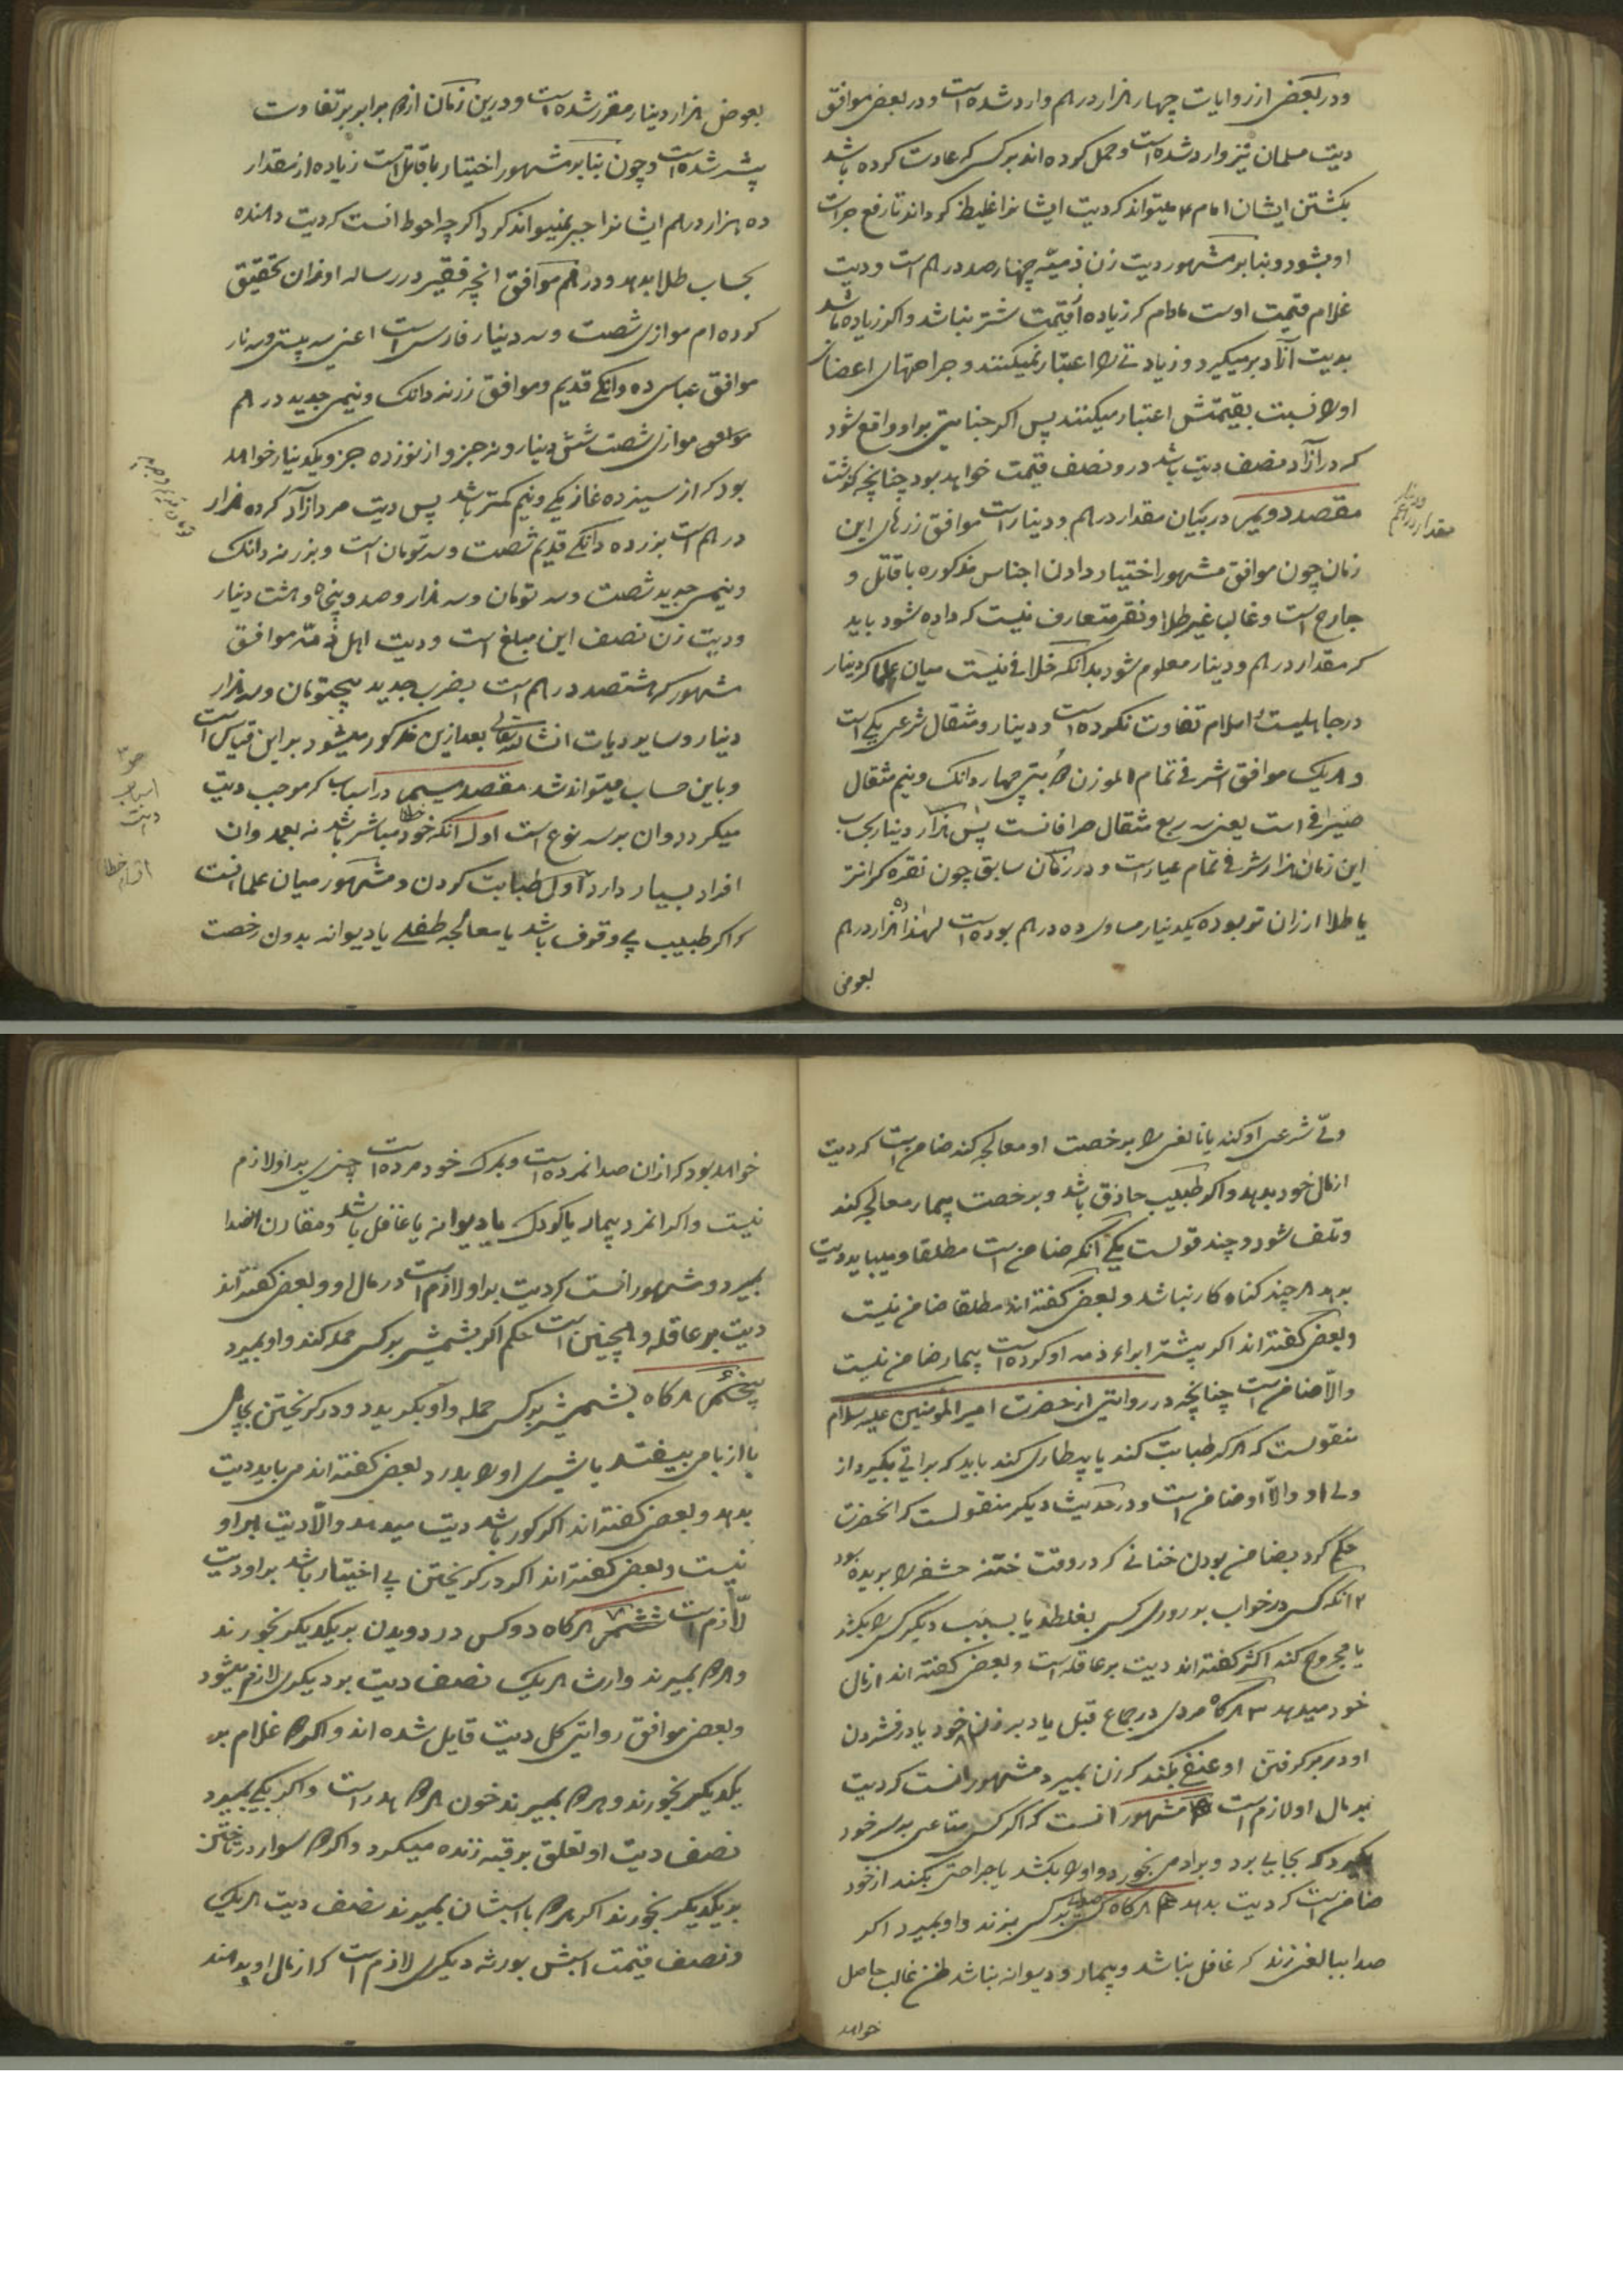 ودر بعضی از روایات چهار هزار درهم وارد شده است ودر بعضی موافق
دیت مسلمان نیز وارد شده است وحمل کرده اند بر کسی که عادت کرده باشد
بکشتن ایشان امام میتواند که دیت ایشانرا غلیظ کرداند تا رفع جرات
او بشود وبنابر مشهور دیت زن ذمیّه چهار صد درهم است ودیت
غلام قیمت اوست مادام که زیاده از قیمت نباشد واکر زیاده باشد
بدیت آزاد بر میکردد وزیادتی را اعتبار نمیکنند وجراحتهای اعضای
او را نسبت بقیمتش اعتبار میکنند پس اکر جنایتی بر او واقع شود
که در آزاد نصف دیت باشد درو نصف قیمت خواهد بود چنانچه کذشت
مقصد دویم در بیان مقدار درهم ودینار است موافق زرهای این
زمان چون موافق مشهور اختیار دادن اجناس مذکوره با قاتل و
جارح است وغالب غیر طلا ونقره متعارف نیست که داده شود باید
که مقدار درهم ودینار معلوم شود بدانکه خلافی نیست میان علما که دینار
در جاهلیت واسلام تفاوت نکرده است ودینار ومثقال شرعی یکی است
وهر یک موافق اشرفی تمام الوزن چهار دانک ونیم مثقال
صیرفی است یعنی سه ربع مثقال صرافانست پس هزار دینار بحساب
این زمان هزار اشرفی تمام عیار است ودر زمان سابق چون نقره کرانتر
یا طلا ارزان تر بوده یکدینار مساوی ده درهم بوده است لهذا ده هزار درهم
بعوض
مقدار درهم
ودینار
بعوض هزار دینار مقرر شده است ودرین زمان از دو برابر بر تفاوت
بیشتر شده است وچون بنابر مشهور اختیار با قاتل است زیاده از مقدار
ده هزار درهم ایشانرا جبر نمیتواند کرد اکرچه احوط انست که دیت دهنده
بحساب طلا بدهد ودرهم موافق انچه فقیر در رساله اوزان تحقیق
کرده ام موازی شصت وسه دینار فارسی است اعنی سه بیستی وسه نار
موافق عباسی ده دانکی قدیم وموافق زر نه دانک ونیمی جدید درهم
موازی شصت شش دینار ونه جزو از نوزده جزو یکدینار خواهد
بود که از سیزده غاز یکی ونیم کمتر باشد پس دیت مرد آزاد که ده هزار
درهم است بزر ده دانکی قدیم شصت وسه تومان است وبزر نه دانک
ونیمی جدید شصت وسه تومان وسه هزار وصد وپنجاه وهشت دینار
ودیت زن نصف این مبلغ است ودیت اهل ذمّه موافق
مشهور که هشتصد درهم است بضرب جدید پنجتومان وسه هزار
دینار وسایر دیات انشا الله تعالی بعد ازین مذکور میشود بر این قیاس است
وباین حساب میتواند شد مقصد سیم در اسباب که موجب دیت
میکردد وان بر سه نوع است اول آنکه خود مباشر باشد خطا نه بعمد وان
افراد بسیار دارد اول طبابت کردن ومشهور میان علما انست
که اکر طبیب بی وقوف باشد یا معالجه طفلی یا دیوانه بدون رخصت
اسباب
دیت
اقسام خطا
ولّی شرعی او کند یا بالغی را بی رخصت او معالجه کند ضامن است که دیت
از مال خود بدهد واکر طبیب حاذق باشد وبرخصت بیمار معالجه کند
وتلف شود دو چند قولست یکی آنکه ضامن است مطلقا ومیباید دیت
بدهد هر چند کناه کار نباشد وبعضی کفته اند مطلقا ضامن نیست
وبعضی کفته اند اکر پیشتر ابراء ذمه او کرده است بیمار ضامن نیست
والّا ضامن است چنانچه در روایتی از حضرت امیر المؤمنین علیه السلام
منقولست که هر که طبابت کند یا بیطاری کند باید که براتی بکیرد از
ولی او والّا او ضامن است ودر حدیث دیکر منقولست که انحضرت
حکم کرد بضامن بودن ختانی که در وقت ختنه حشفه را بریده بود
۲ انکه کسی در خواب بر روی کسی بغلطد یا بسبب دیکر کسی را بکشد
یا مجروح کند اکثر کفته اند دیت بر عاقله است وبعضی کفته اند از مال
خود میدهد ۳ هر کاه مردی در جماع قبل یا دبر زن خود یا در فشردن
او در بر کرفتن او عنفی بکند که زن بمیرد مشهور انست که دیت
بر مال او لازم است مشهور انست که اکر کسی متاعی بر سر خود
بکیرد که بجایی برد وبر ادمی بخورد واو را بکشد یا جراحتی بکند از خود
ضامن است که دیت بدهد هر کاه کسی صدا بر کسی بزند واو بمیرد اکر
صدا ببالغی زند که غافل نباشد وبیمار ودیوانه نباشد ظن غالب حاصل
خواهد
خواهد بود که از ان صدا نمرده است وبمرک خود مرده است چیزی بر او لازم
نیست واکر انمرد بیمار یا کودک یا دیوانه یا غافل باشد ومقارن انصدا
بمیرد ومشهور انست که دیت بر او لازم است در مال او وبعضی کفته اند
دیت بر عاقله وهمچنین است حکم اکر بشمشیر بر کسی حمله کند واو بمیرد
پنجم هر کاه بشمشیر بر کسی حمله واو بکریزد ودر کریختن بچاهی
یا از بامی بیفتد یا شیری او را بدرد بعضی کفته اند می باید دیت
بدهد وبعضی کفته اند اکر کور باشد دیت میدهد والّا دیت بر او
نیست وبعضی کفته اند اکر در کریختن بی اختیار باشد بر او دیت
لازم است ششم هر کاه دو کس در دویدن بر یکدیکر بخورند
وهر دو بمیرند وارث هر یک نصف دیت بر دیکری لازم میشود
وبعضی موافق روایتی کل دیت قایل شده اند واکر دو غلام بر
یکدیکر بخورند وهر دو بمیرند خون هر دو هدر است واکر یکی بمیرد
نصف دیت او تعلق برقبه زنده میکیرد واکر دو سوار در تاختن
بر یکدیکر بخورند اکر هر دو با اسبشان بمیرند نصف دیت هر یک
ونصف قیمت اسبش بورثه دیکری لازم است که از مال او بدهند